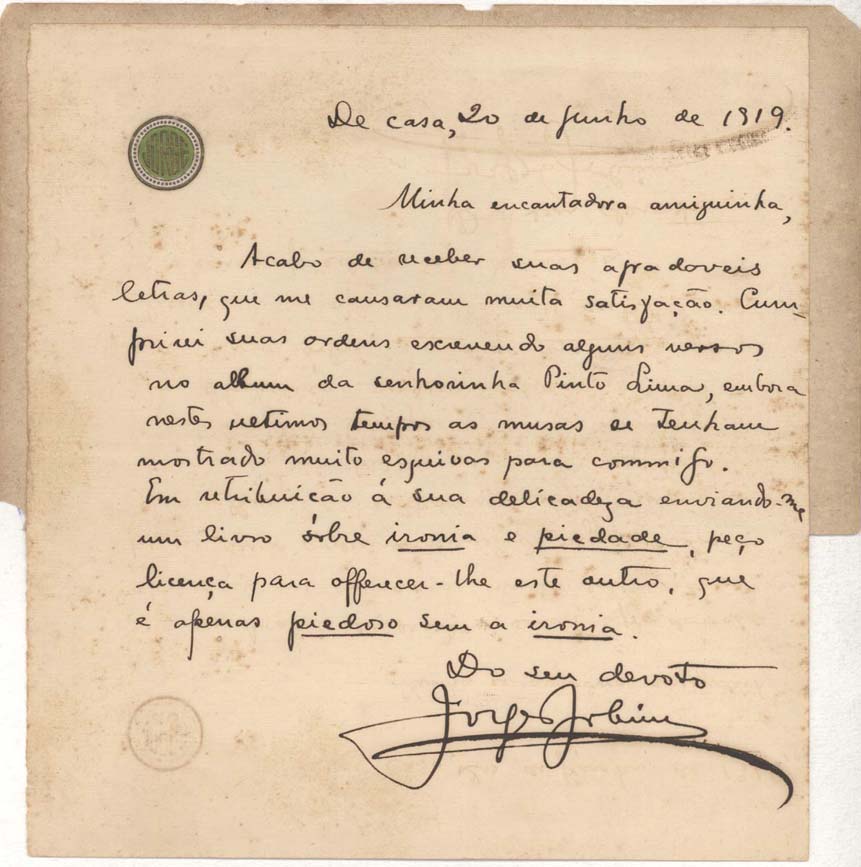 De casa, 20 de junho de 1919.
Minha encantadora amiguinha,
Acabo de receber suas agradaveis
letras, que me causaram muita satisfação. Cum-
prirei suas ordens escrevendo alguns versos
no album da senhorinha Pinto Lima, embora
nestes ultimos tempos as musas se tenham
mostrado muito esquivas para commigo.
Em retribuição á sua delicadeza enviando-me
um livro sôbre ironia e piedade, peço
licença para offerecer-lhe este outro, que
é apenas piedoso sem a ironia.
Do seu devoto
Jorge Jobim